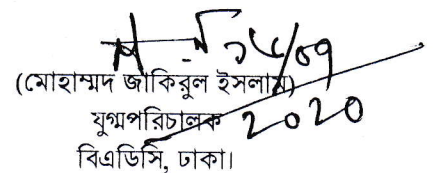 ১৫/০৭
(মোহাম্মদ জাকিরুল ইসলাম)
যুগ্মপরিচালক ২০২০
বিএডিসি, ঢাকা।